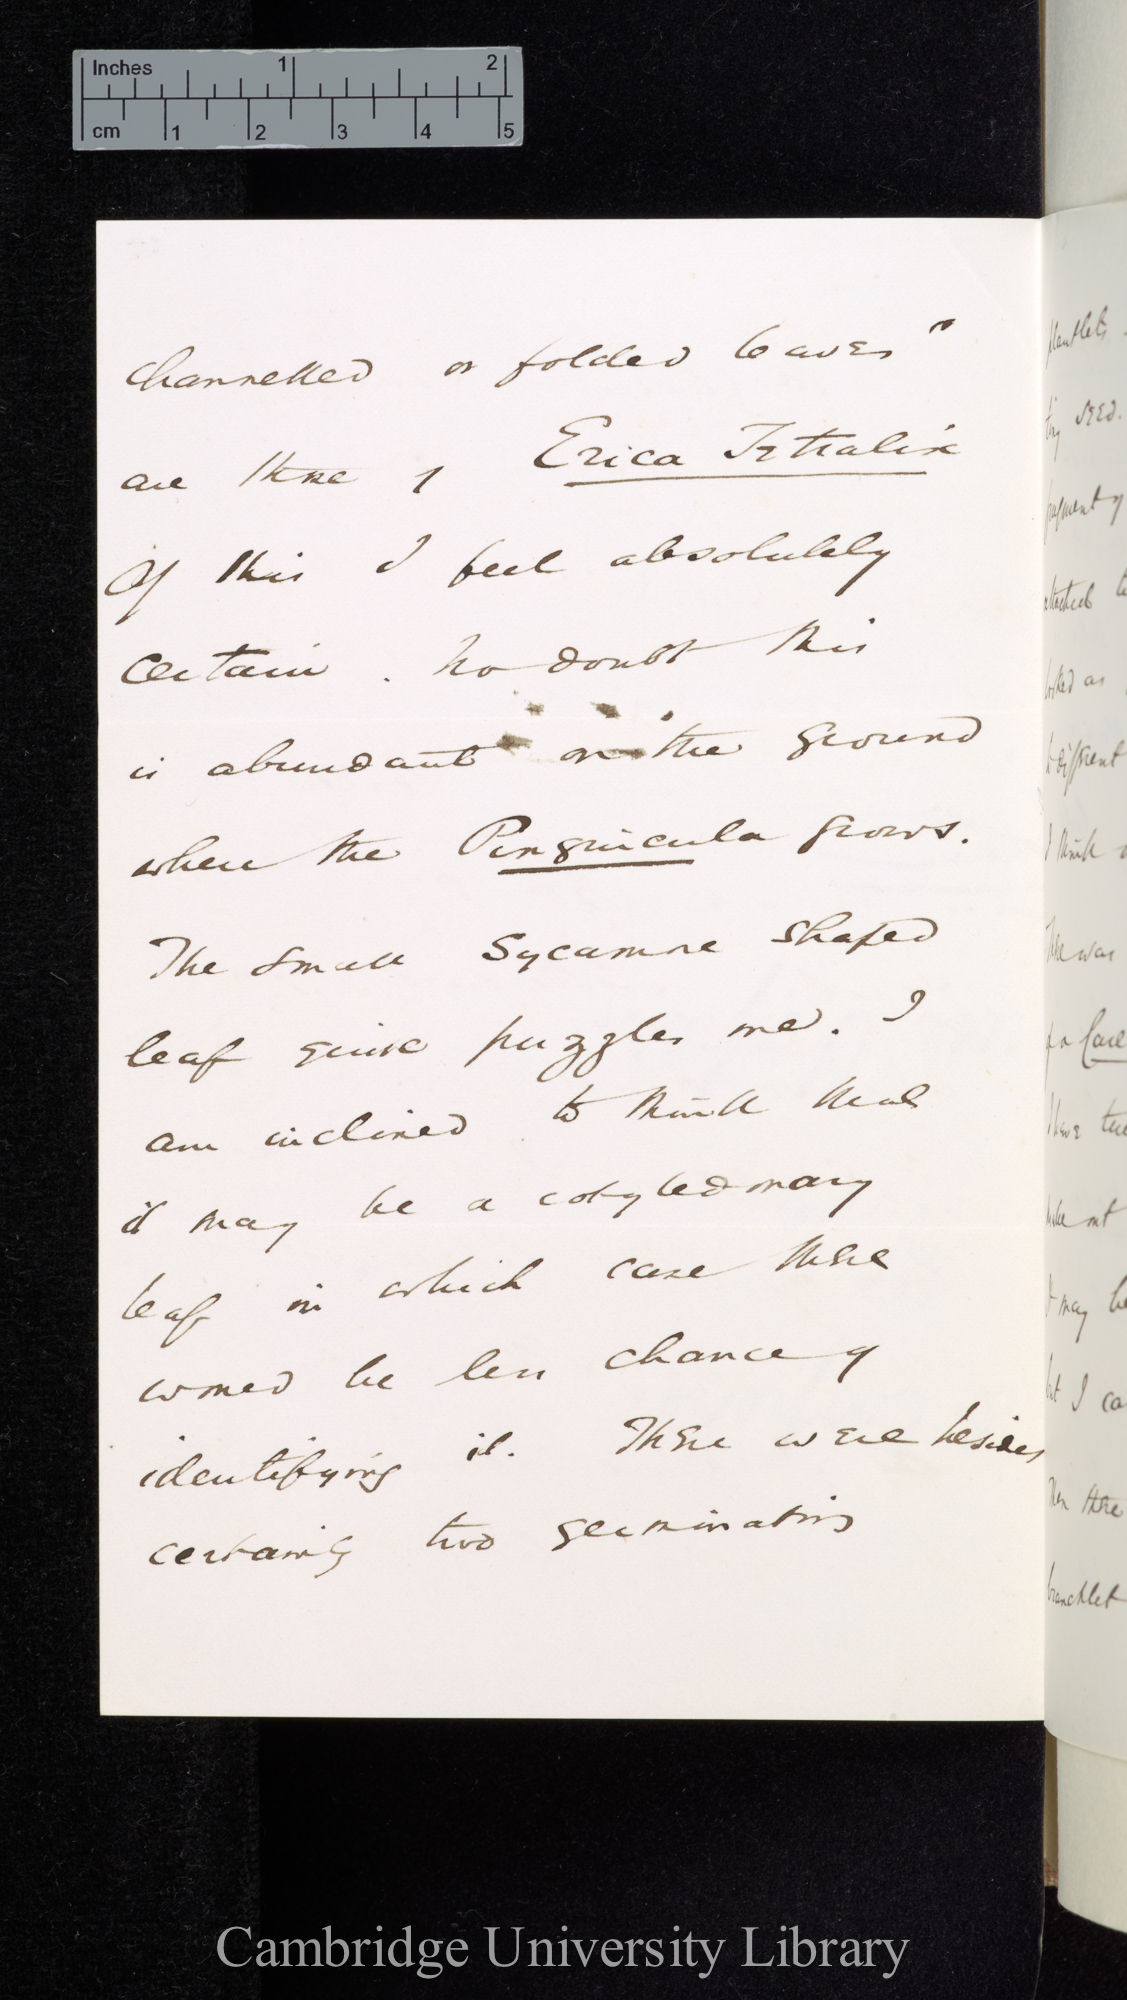 Inches 1 2
cm 1 2 3 4 5
channelled or folded leaves"
are those of Erica Tetralix
Of this I feel absolutely
certain. No doubt this
is abundant on the ground
where the Pinguicula grows.
The small Sycamore shaped
leaf quite puzzles me. I
am inclined to think that
it may be a cotyledonary
leaf in which case there
would be less chance of
identifying it. There were besides
certainly two germinating
plantlets
ting seed.
fragment of
attached to
looked as
different
I think
There was
of a Care
I have
make out
it may be
but I ca
Then there
branchlet
Cambridge University Library